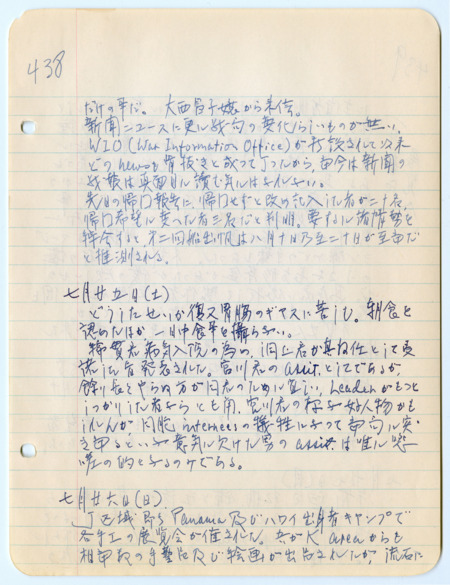 438
だけの事だ。大西智子嬢から来信。
新聞ニュースに更に戦局の変化らしいものが無い。
WIO (War Information Office) が打倒されて以来
どの newsも骨抜きと成って了ったから、当今は新聞の
戦報は真面目に読む気にはなれない。
先日の帰国報告に、帰国せずと改め記入した者が二十名、
帰国希望に変へた者三名だと判明。要するに諸情勢を
綜合すると、第二回船出帆は八月十日乃至二十日が至当だ
と推測される。
七月廿五日(土)
どうしたせいか復又胃腸のギヤスに苦しむ。朝食を
認めたほか一日中食事を攝らない。
君病気入院の為め、君が兼任として受
された。宮川君の assist. としてであるが、
餘り長くやらぬ方が同君のために宜しい。Leader がもっと
しっかりした者なら とも角、宮川君の様な好人物かも
しれんが internees の犠牲になって当局に突
意気に欠けた男の assist. は唯に嘲
の的となるのみである。
七月廿六日(日)
J 区域 即ち Panama 及びハワイ出身者キャンプで
各手工の展覧会が催された。K areaからも
相当数の手芸品及び絵画が出品されたが、流石に